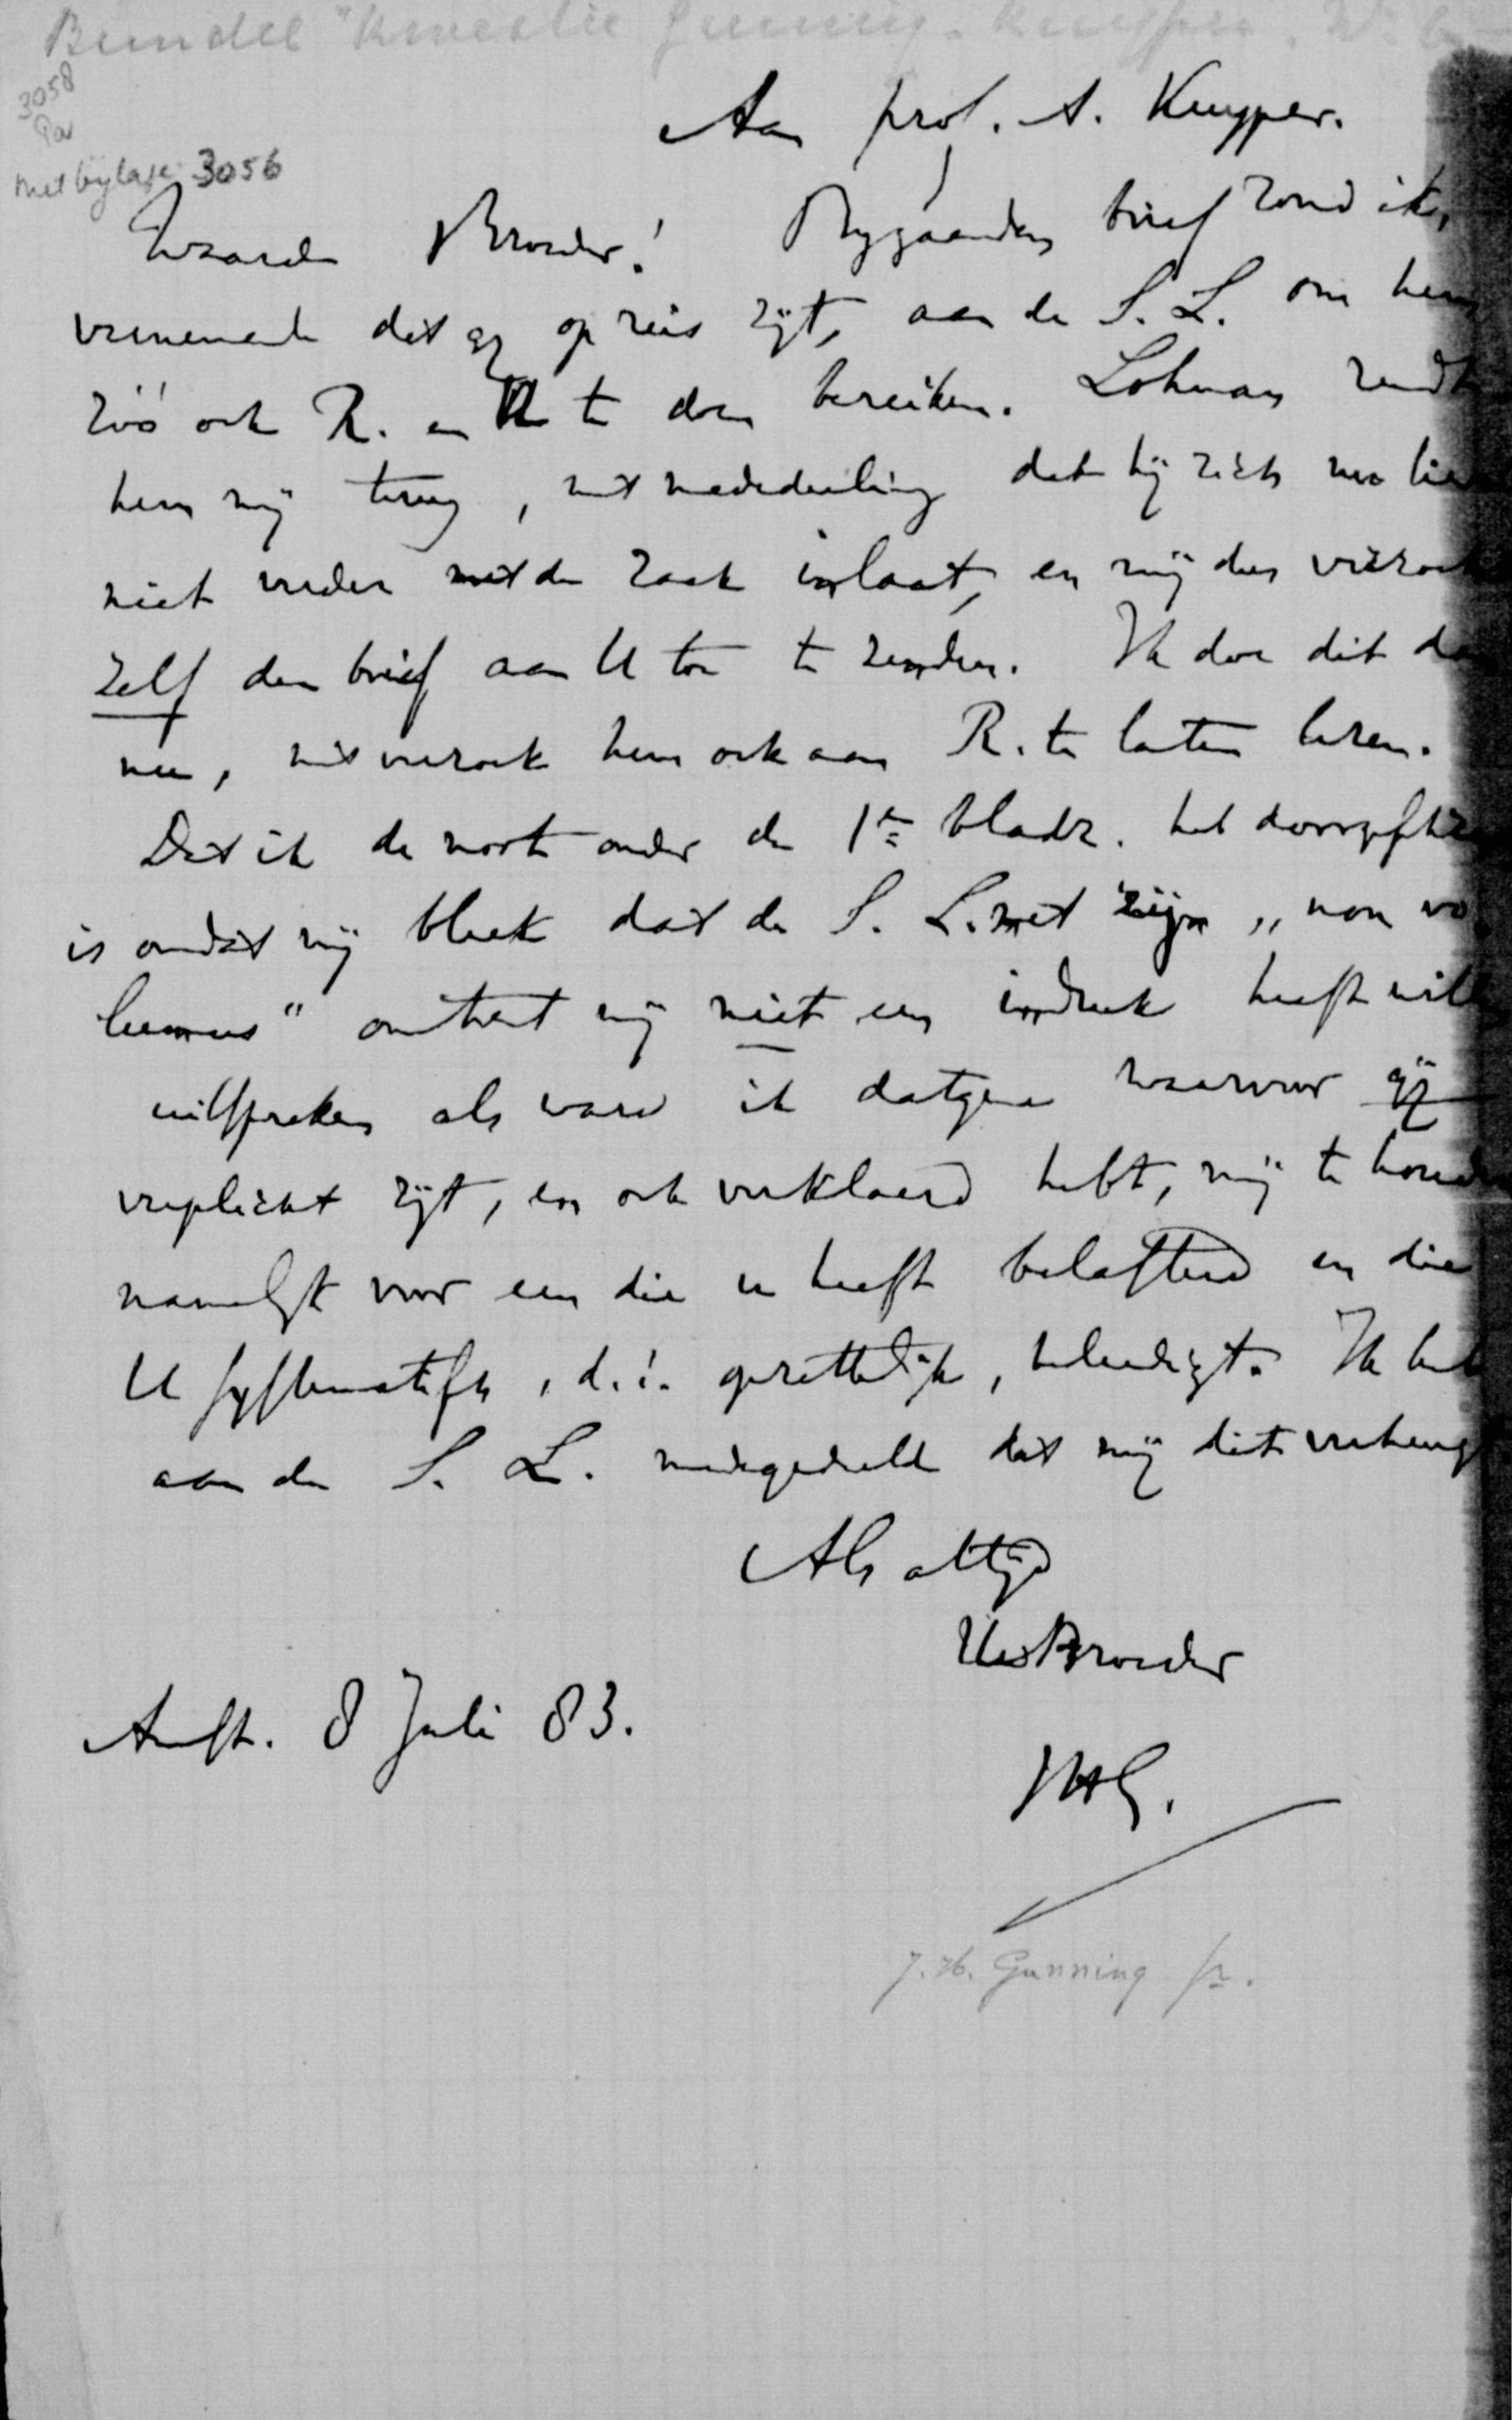 Bundel "Kwestie Gunning-Kuyper.
3058
met bijlage 3056
Aan prof. A. Kuyper.
Waarde Broeder! Bijgaanden brief zond ik,
vernemende dat gij op reis zijt, aan de S. L. om hem
zóó ook R. en U te doen bereiken. Lohman zendt
hem mij terug, met mededeeling dat hij zich nu
niet verder met de zaak inlaat, en mij dus verzoekt
zelf den brief aan U toe te zenden. Ik doe dit dan
nu, met verzoek hem ook aan R. te laten lezen.
Dat ik de noot onder de 1e bladz. heb
is omdat mij bleek dat de S. L. met zijn „non vo
lumus" omtrent mij niet een indruk heeft
uitspreken als ware ik datgene waarvoor gij
verplicht zijt, en ook verklaard hebt, mij te houden
namelijk voor een die u heeft belasterd en die
U systematisch, d.i. opzettelijk, beleedigt. Ik heb
aan de S. L. medegedeeld dat mij dit verheugt
Als altijd
Uw Broeder
Amst. 8 Juli 83.
JHG.
J. H. Gunning Jr.